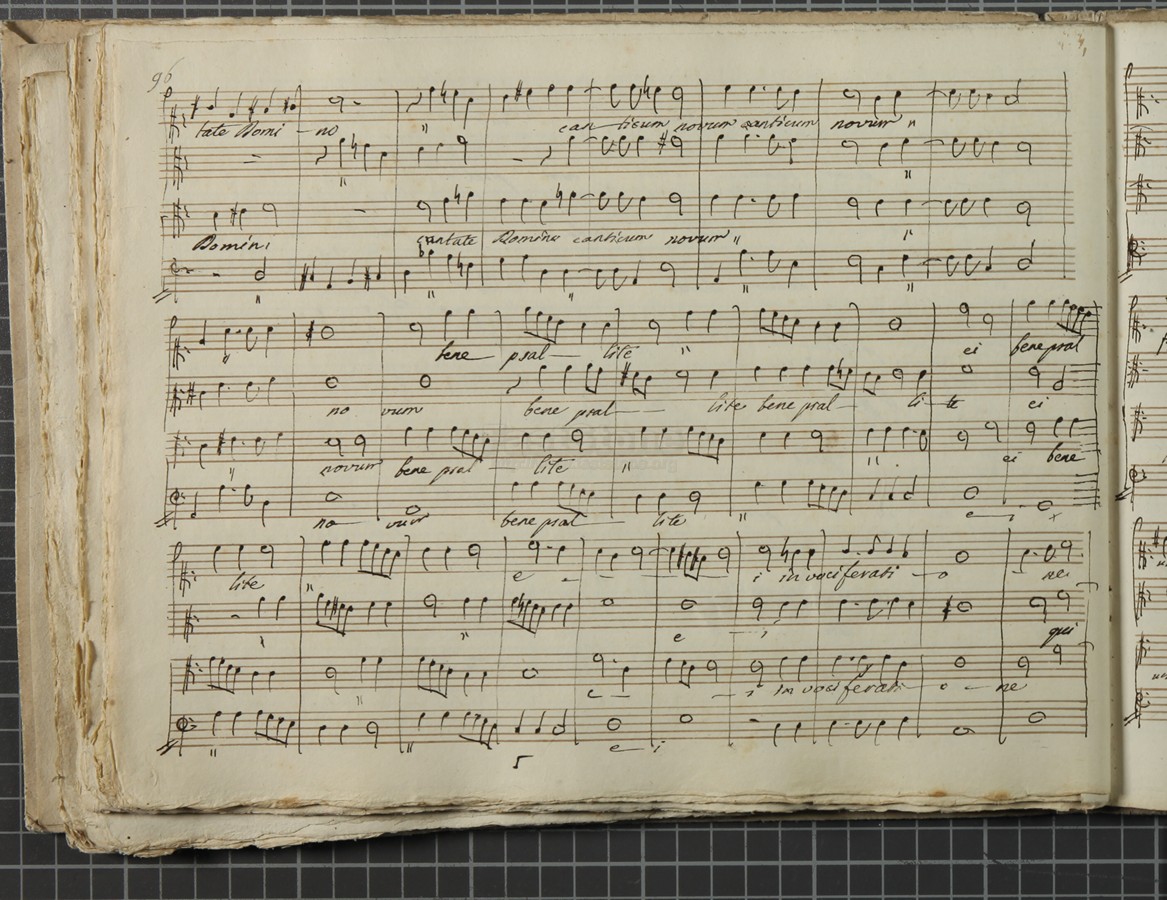 96
tate Domi - no can - ticum novum canticum novum "
"
" "
Domini cantate Domino canticum novum "
"
" " " "
bene psal - lite " ei bene psal
no vum bene psal - lite bene psal - li - te ei
" novum bene psal - lite " " ei bene
no - vum bene psal - lite " e - i
lite " e - - - i in vociferati - o - ne
" e - i qui
" e - - i in vociferati - o - ne
" " e - i
5